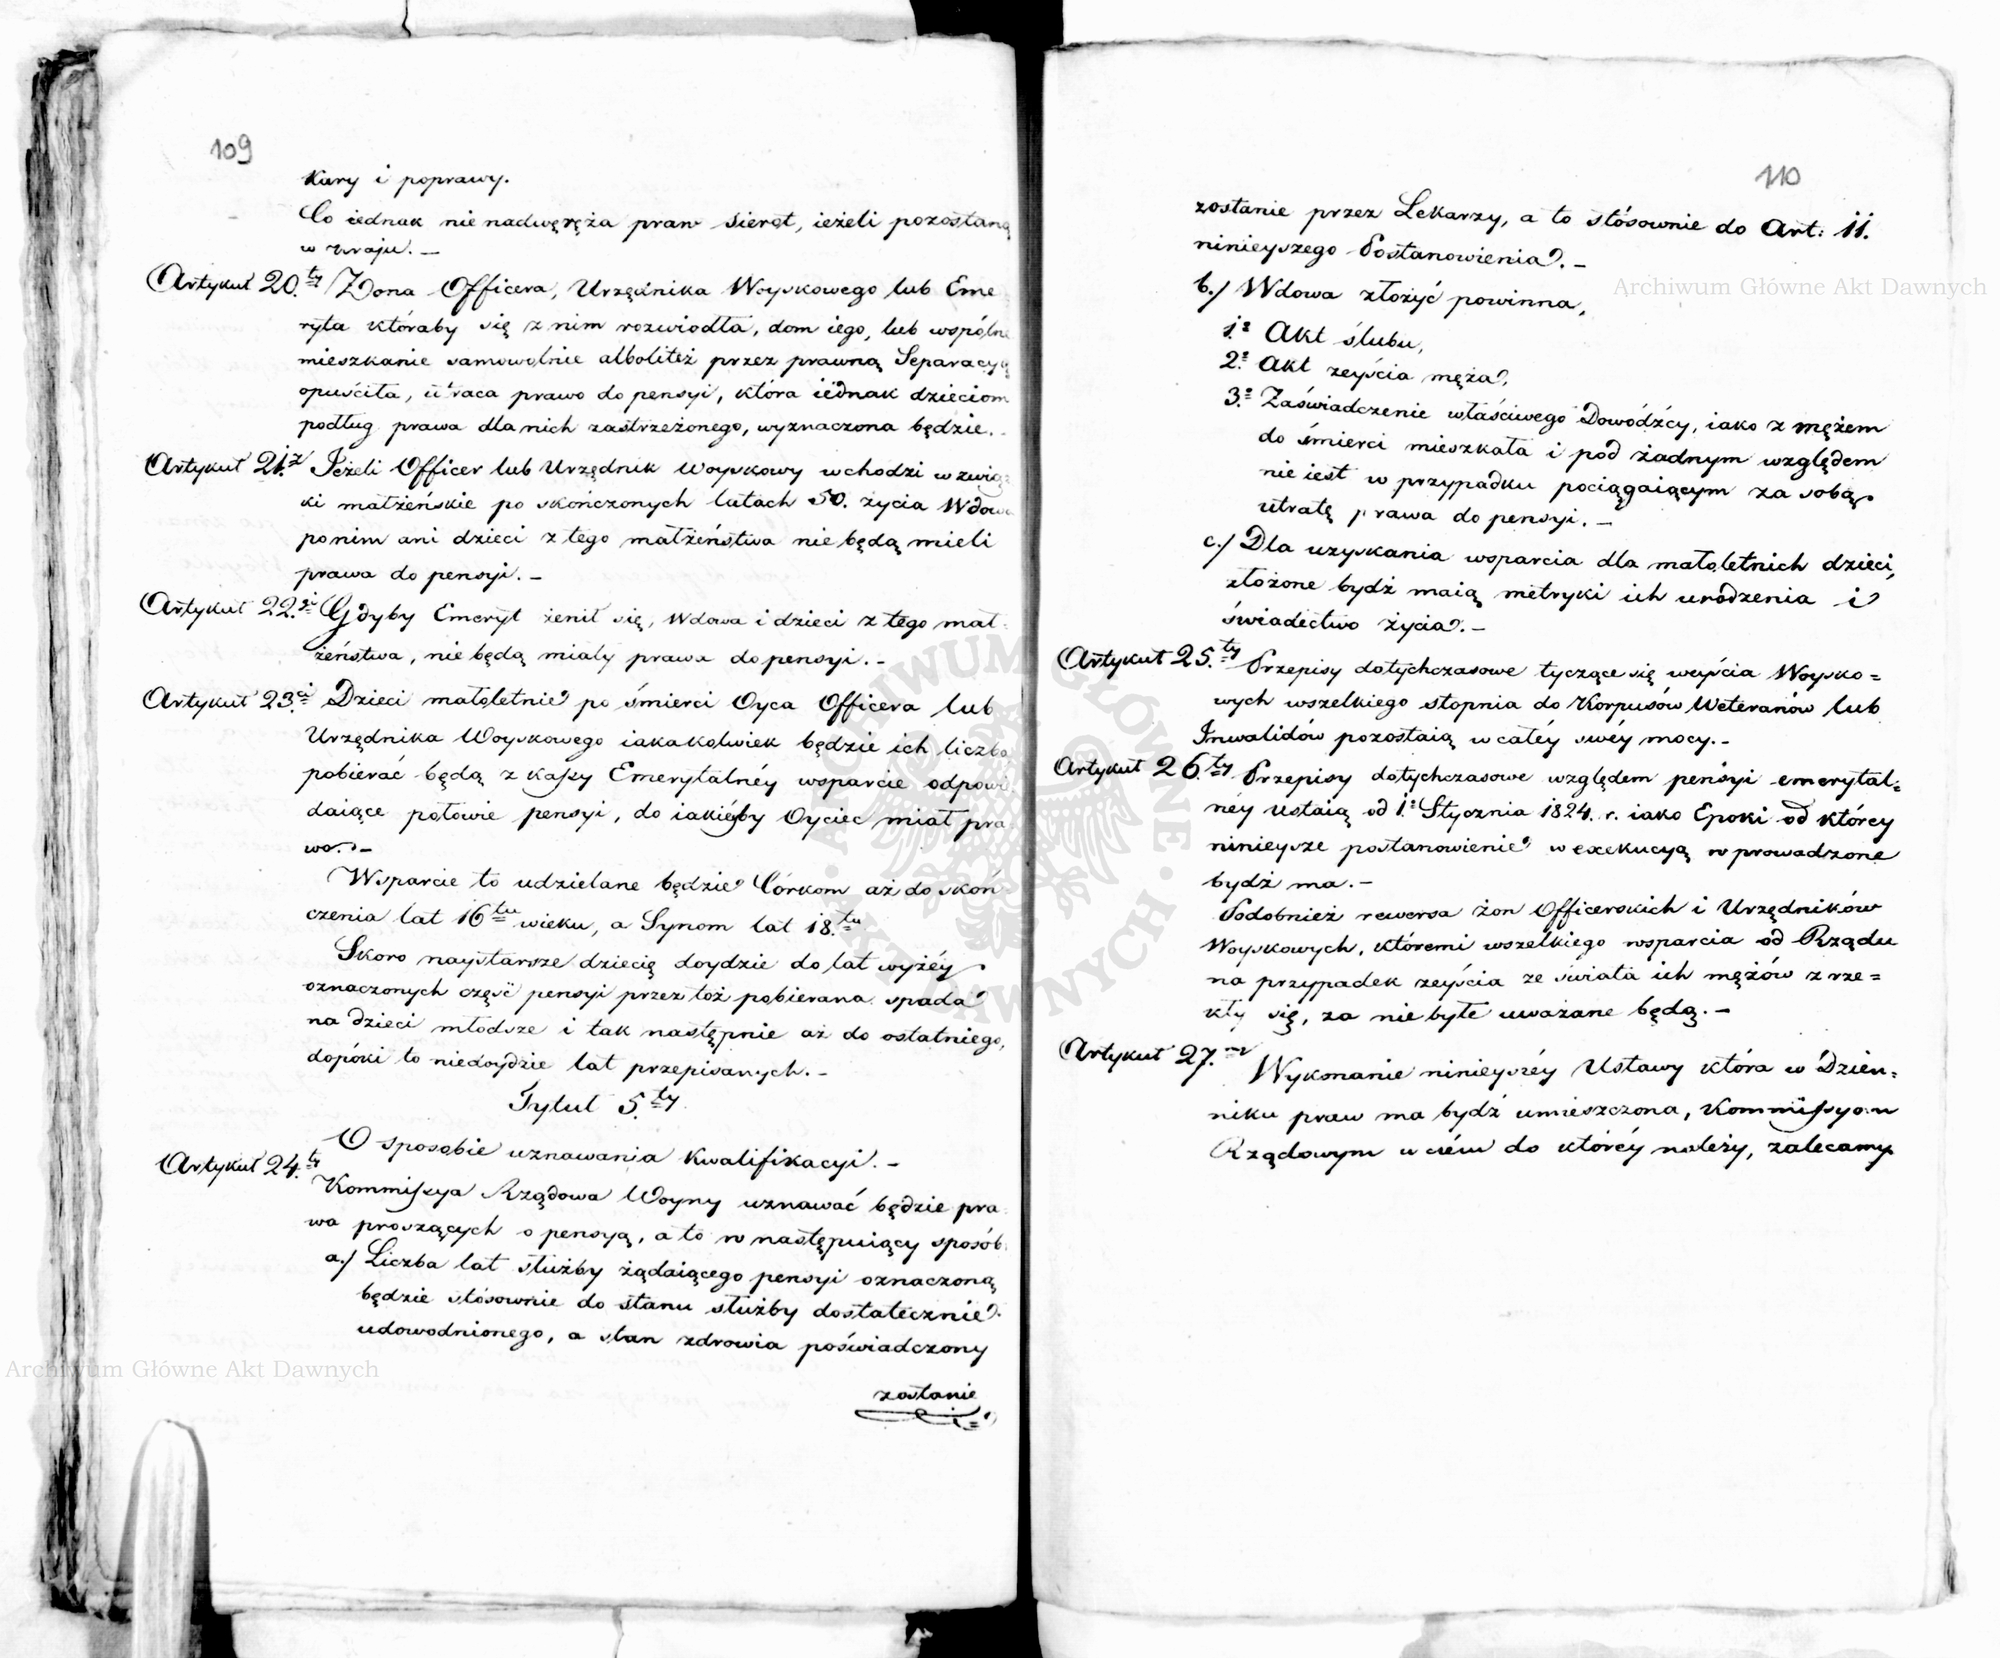 109
kary i poprawy.
Co iednak nie nadwęręża praw Sierot, ieżeli pozostaną
w kraju. —
Artykuł 20.ty Żona Officera, Urzędnika Woyskowego lub Eme
ryta któraby się z nim rozwiodła, dom iego, lub wspólne
mieszkanie samowolnie alboliteż przez prawną Separacyą
opuściła, utraca prawo do pensyi, która iednak dzieciom
podług prawa dla nich zastrzeżonego, wyznaczona będzie. -
Artykuł 21.szy Jeżeli Officer lub Urzędnik Woyskowy wchodzi w związ
ki małżeńskie po skończonych latach 50. życia Wdowa
po nim ani dzieci z tego małżeństwa nie będą mieli
prawa do pensyi. —
Artykuł 22.gi Gdyby Emeryt żenił się, Wdowa i dzieci z tego mał-
żeństwa, nie będą miały prawa do pensyi. —
Artykuł 23.ci Dzieci małoletnie po śmierci Oyca Officera lub
Urzędnika Woyskowego iakakolwiek będzie ich liczba
pobierać będą z kassy Emerytalnéy wsparcie odpowi
daiące połowie pensyi, do iakiéyby Oyciec miał pra
wo. —
Wsparcie to udzielane będzie Córkom aż do skoń
czenia lat 16tu wieku, a Synom lat 18.tu
Skoro naystarsze dziecię doydzie do lat wyżéy
oznaczonych część pensyi przez toż pobierana spada
na dzieci młodsze i tak następnie aż do ostatniego,
dopóki to niedoydzie lat przepisanych. —
Tytuł 5.ty
O sposobie uznawania Kwalifikacyi. —
Artykuł 24.ty
Kommissya Rządowa Woyny uznawać będzie pra
wa proszących o pensyą, a to w następuiący sposób
a./ Liczba lat służby żądaiącego pensyi oznaczoną
będzie stósownie do stanu służby dostatecznie
udowodnionego, a stan zdrowia poświadczony
zostanie
110
zostanie przez Lekarzy, a to stósownie do Art: 11.
ninieyszego Postanowienia. —
b./ Wdowa złożyć powinna,
1.° Akt ślubu,
2.° Akt zeyścia męża,
3.° Zaświadczenie właściwego Dowódźcy, iako z mężem
do śmierci mieszkała i pod żadnym względem
nie iest w przypadku pociągaiącym za sobą
utratę prawa do pensyi. —
c./ Dla uzyskania wsparcia dla małoletnich dzieci,
złożone bydź maią metryki ich urodzenia i
świadectwo życia. —
Artykuł 25.ty Przepisy dotychczasowe tyczące się weyścia Woysko=
wych wszelkiego stopnia do Korpusów Weteranów lub
Inwalidów pozostaią w całéy swéy mocy. —
Artykuł 26.ty Przepisy dotychczasowe względem pensyi emerytal=
néy ustaią od 1.° Stycznia 1824. r. iako Epoki od którcy
ninieysze postanowienie w exekucyą wprowadzone
bydź ma. —
Podobnież rewersa żon Officerskich i Urzędników
Woyskowych, któremi wszelkiego wsparcia od Rządu
na przypadek zeyścia ze świata ich mężów zrze=
kły się, za niebyłe uważane będą. —
Artykuł 27.my
Wykonanie ninieyszéy Ustawy która w Dzien=
niku praw ma bydź umieszczona, Kommissyom
Rządowym w czém do któréy należy, zalecamy
Archiwum Główne Akt Dawnych
Archiwum Główne Akt Dawnych
ARCHIWUM GŁÓWNE · AKT DAWNYCH ·